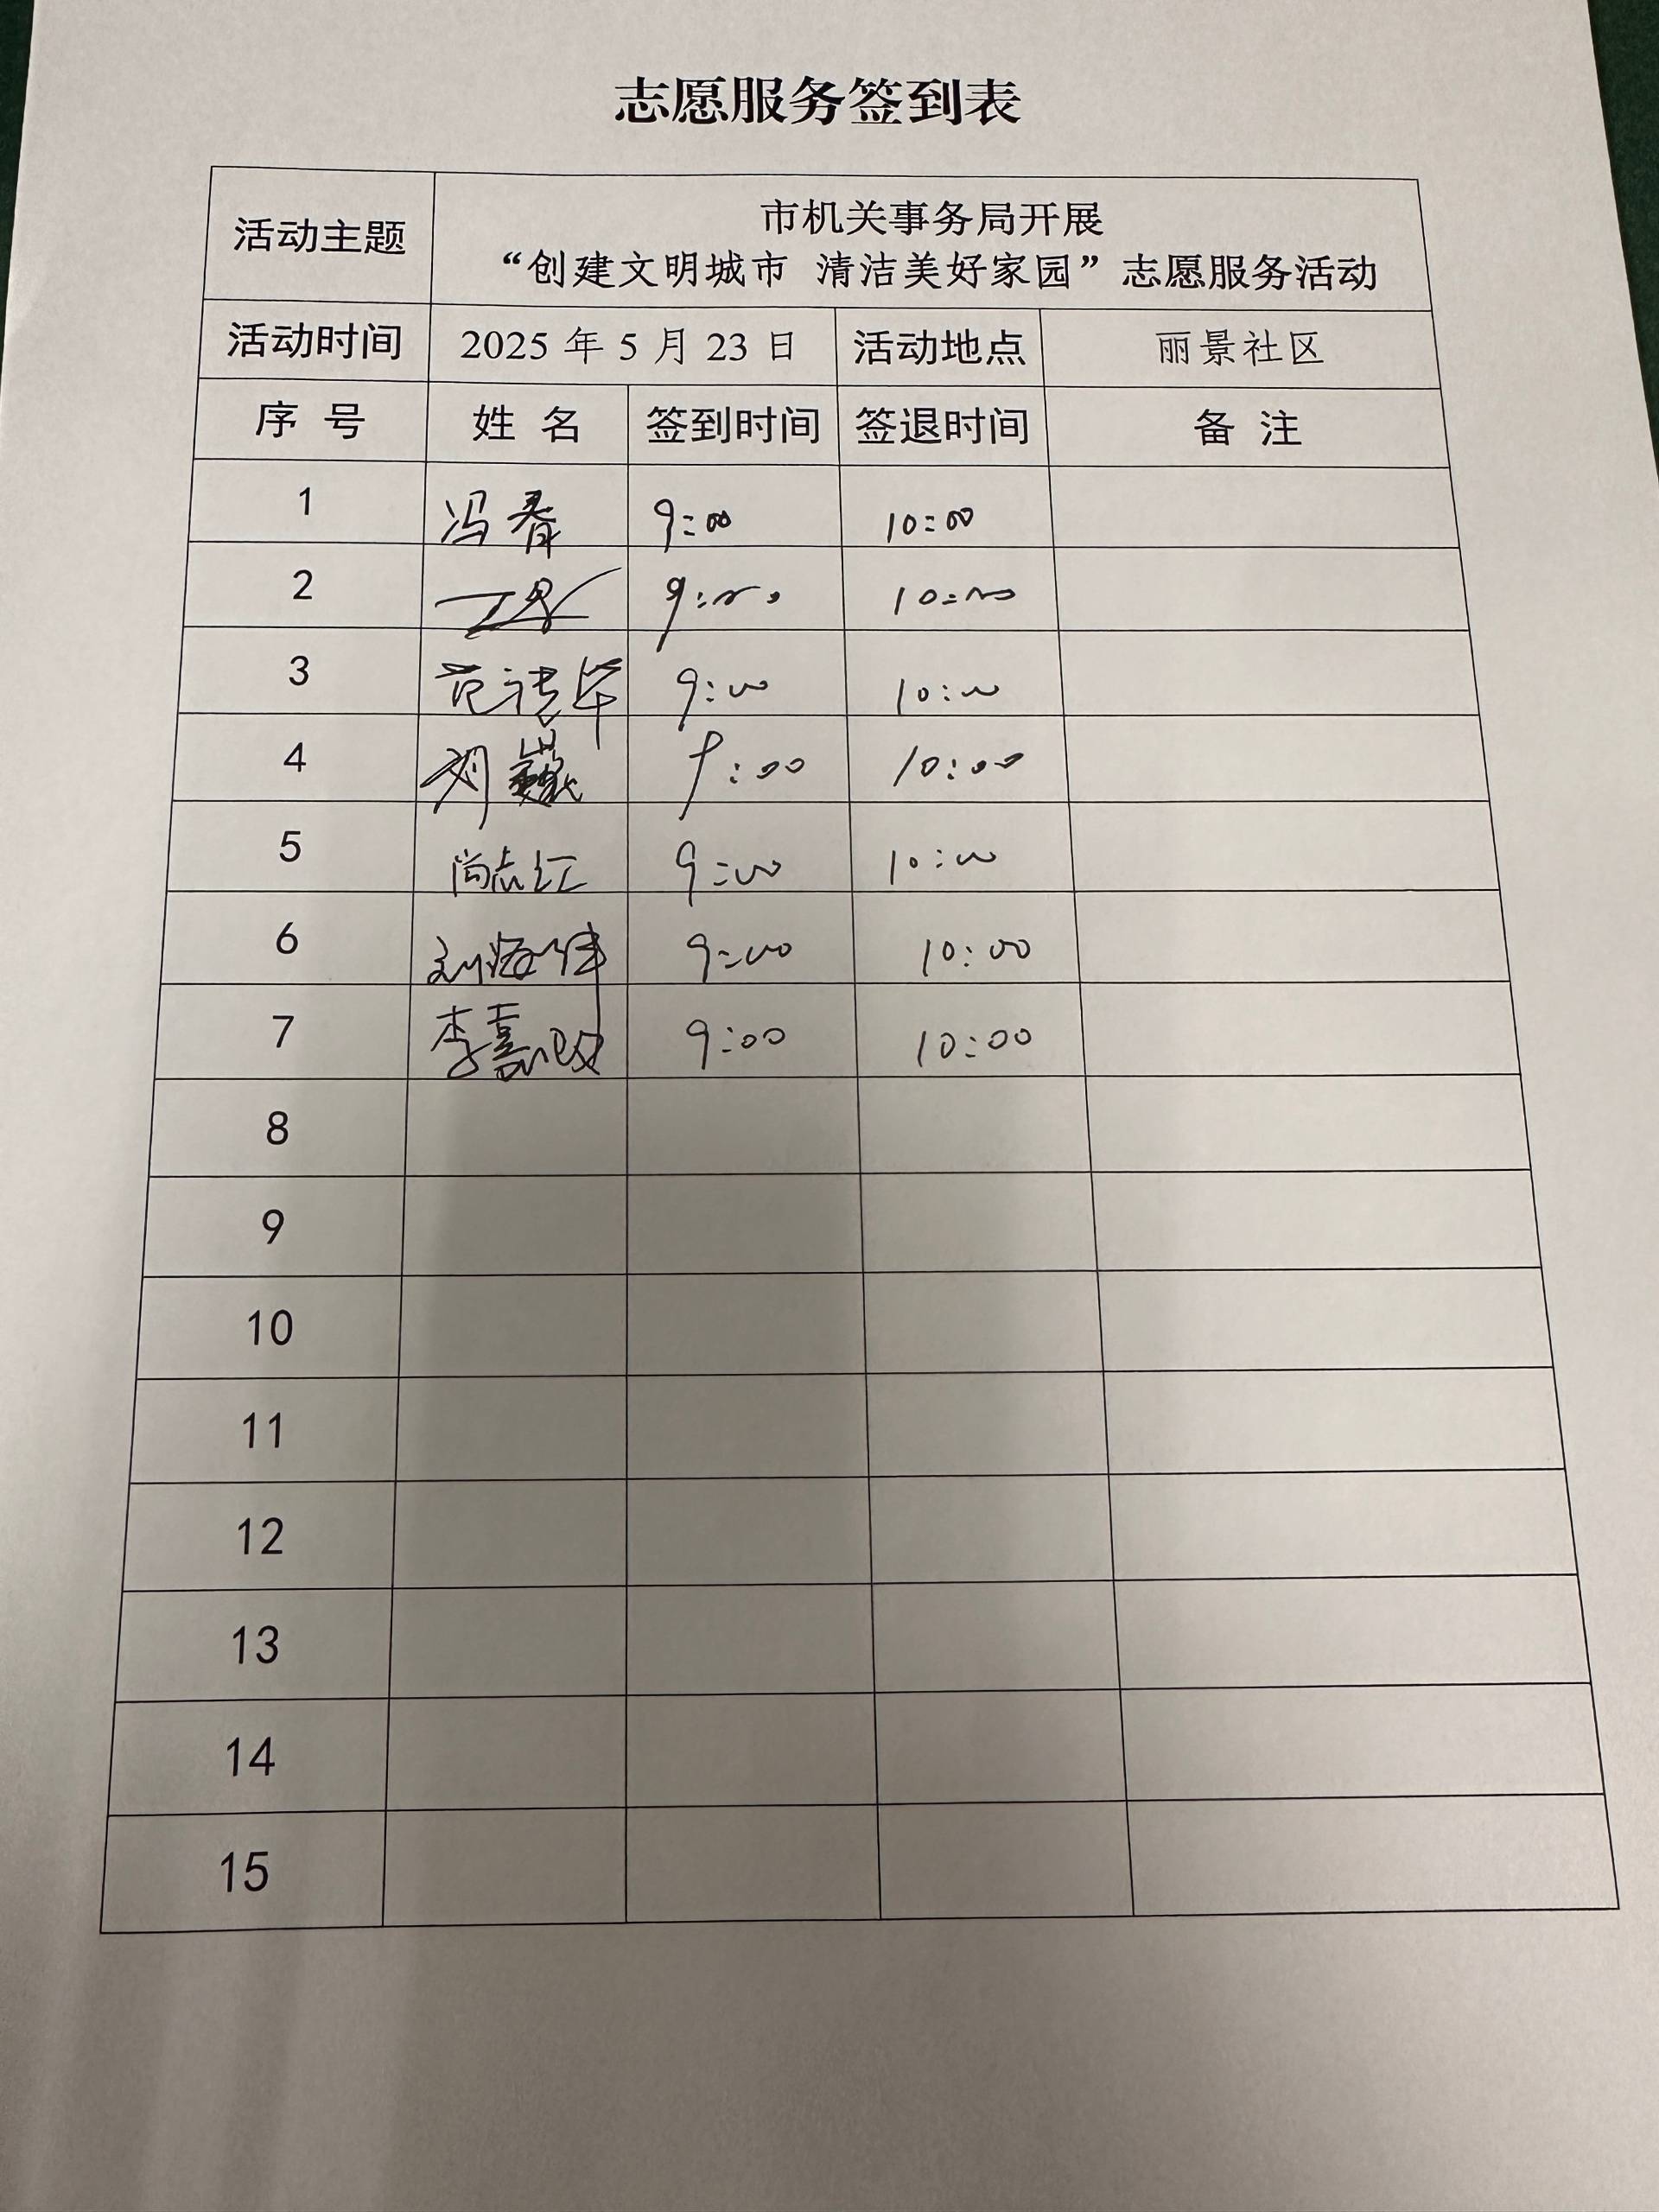 志愿服务签到表
活动主题
市机关事务局开展
“创建文明城市 清洁美好家园”志愿服务活动
活动时间 2025 年 5 月 23 日 活动地点 丽景社区
序 号 姓 名 签到时间 签退时间 备 注
1 冯春 9:00 10:00
2 9:00 10:00
3 范 9:00 10:00
4 刘巍 9:00 10:00
5 尚志红 9:00 10:00
6 刘海伟 9:00 10:00
7 李嘉 9:00 10:00
8
9
10
11
12
13
14
15